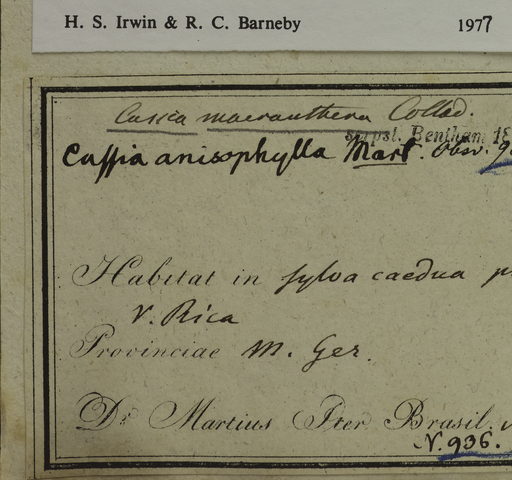 H. S. Irwin & R. C. Barneby 1977
Cassia macranthera Collad.
scripst. Bentham 18
Cassia anisophylla Mart. Obsv. 9
Habitat in sylva caedua p
V. Rica
Provinciae M. Ger.
Dr Martius Iter Brasil.
N. 936.